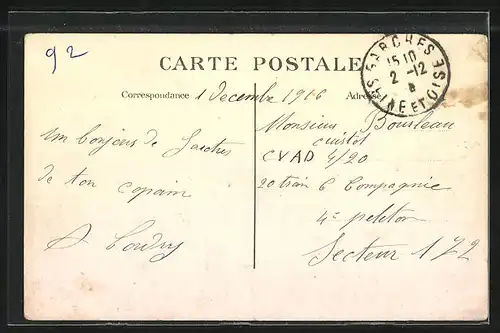 92
CARTE POSTALE
GARCHES
15 10
2 -12
SEINE ET OISE
Correspondance 1 Decembre 1916
Adresse
un bonjour de Garches
de ton copain
Monsieur Bourleau
cuistot
CVAD 4/20
20 train 6 Compagnie
4e peloton
Secteur 172